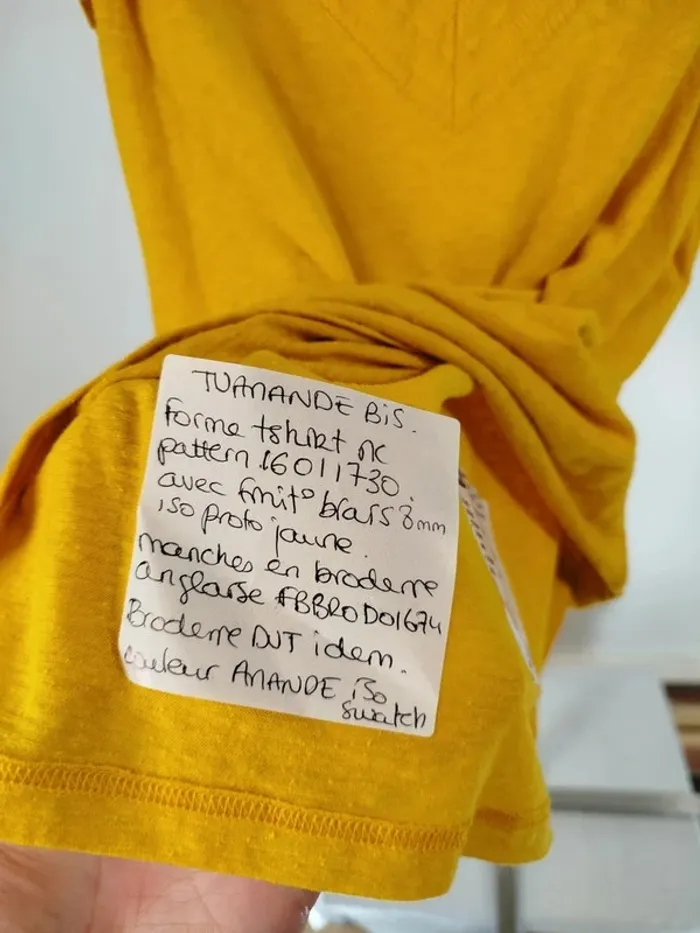 TUAMANDE BIS.
forme tshirt MC
pattern 16011730.
avec finit° biais 8mm
iso proto jaune.
manches en broderie
anglaise FBBRODO1674
Broderie DVT idem.
couleur AMANDE iso
swatch